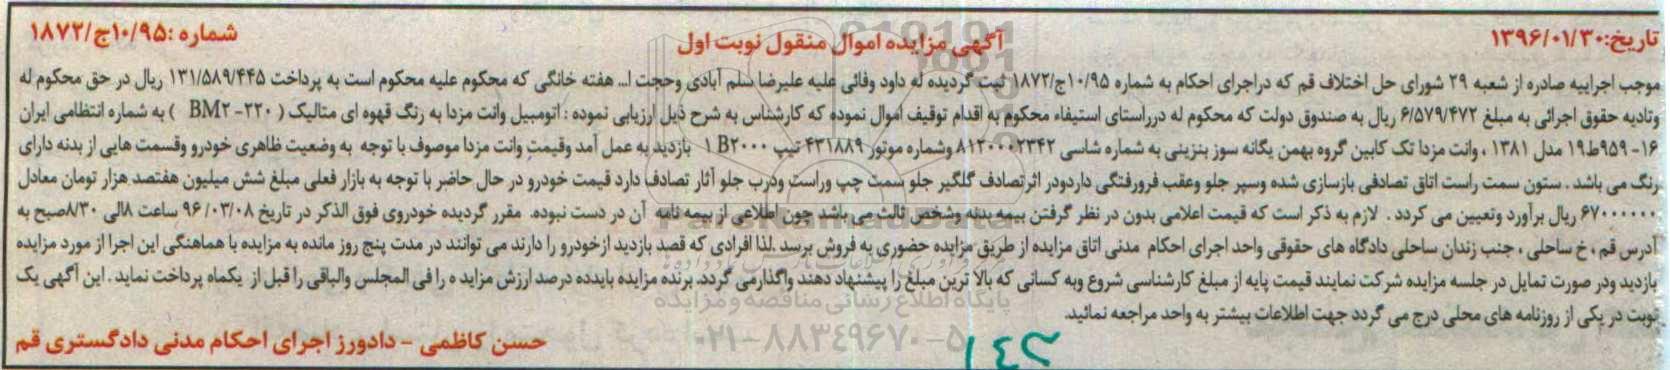 تاریخ:۱۳۹۶/۰۱/۳۰
آگهی مزایده اموال منقول نوبت اول
شماره :۱۰/۹۵ج/۱۸۷۲
موجب اجراییه صادره از شعبه ۲۹ شورای حل اختلاف قم که دراجرای احکام به شماره ۱۰/۹۵ج/۱۸۷۲ ثبت گردیده له داود وفائی علیه علیرضا سلم آبادی وحجت ا... هفته خانگی که محکوم علیه محکوم است به پرداخت ۱۳۱/۵۸۹/۴۴۵ ریال در حق محکوم له
وتادیه حقوق اجرائی به مبلغ ۶/۵۷۹/۴۷۲ ریال به صندوق دولت که محکوم له درراستای استیفاء محکوم به اقدام توقیف اموال نموده که کارشناس به شرح ذیل ارزیابی نموده : اتومبیل وانت مزدا به رنگ قهوه ای متالیک ( BM۲-۲۲۰ ) به شماره انتظامی ایران
۱۶- ۹۵۹ط۱۹ مدل ۱۳۸۱ ، وانت مزدا تک کابین گروه بهمن یگانه سوز بنزینی به شماره شاسی ۸۱۲۰۰۰۲۳۴۲ وشماره موتور ۴۳۱۸۸۹ تیپ ۱ B۲۰۰۰ بازدید به عمل آمد وقیمت وانت مزدا موصوف با توجه به وضعیت ظاهری خودرو وقسمت هایی از بدنه دارای
رنگ می باشد . ستون سمت راست اتاق تصادفی بازسازی شده وسپر جلو وعقب فرورفتگی داردودر اثرتصادف گلگیر جلو سمت چپ وراست ودرب جلو آثار تصادف دارد قیمت خودرو در حال حاضر با توجه به بازار فعلی مبلغ شش میلیون هفتصد هزار تومان معادل
۶۷۰۰۰۰۰۰ ریال برآورد وتعیین می کردد . لازم به ذکر است که قیمت اعلامی بدون در نظر گرفتن بیمه بدنه وشخص ثالث می باشد چون اطلاعی از بیمه نامه آن در دست نبوده. مقرر گردیده خودروی فوق الذکر در تاریخ ۹۶/۰۳/۰۸ ساعت ۸الی ۸/۳۰صبح به
آدرس قم ، خ ساحلی ، جنب زندان ساحلی دادگاه های حقوقی واحد اجرای احکام مدنی اتاق مزایده از طریق مزایده حضوری به فروش برسد .لذا افرادی که قصد بازدید ازخودرو را دارند می توانند در مدت پنج روز مانده به مزایده با هماهنگی این اجرا از مورد مزایده
بازدید ودر صورت تمایل در جلسه مزایده شرکت نمایند قیمت پایه از مبلغ کارشناسی شروع وبه کسانی که بالا ترین مبلغ را پیشنهاد دهند واگذارمی گردد. برنده مزایده بایدده درصد ارزش مزاید ه را فی المجلس والباقی را قبل از یکماه پرداخت نماید . این آگهی یک
نوبت در یکی از روزنامه های محلی درج می گردد جهت اطلاعات بیشتر به واحد مراجعه نمائید.
حسن کاظمی - دادورز اجرای احکام مدنی دادگستری قم
ParsNamadData
پایگاه اطلاع رسانی مناقصه و مزایده
۰۲۱-۸۸۳۴۹۶۷۰-۵